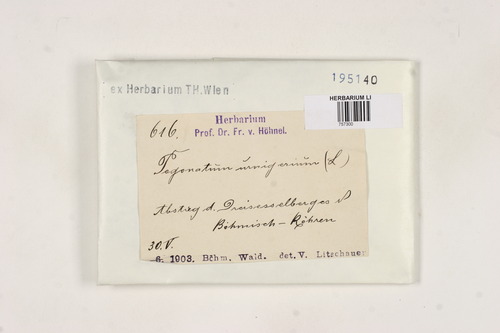 195140
ex Herbarium TH.Wien
HERBARIUM LI
797300
616.
Herbarium
Prof. Dr. Fr. v. Höhnel.
Pogonatum urnigerum (L.)
Abstieg d. Dreisesselberges
Böhmisch-Röhren
30.V.
6. 1903. Böhm. Wald. det. V. Litschauer